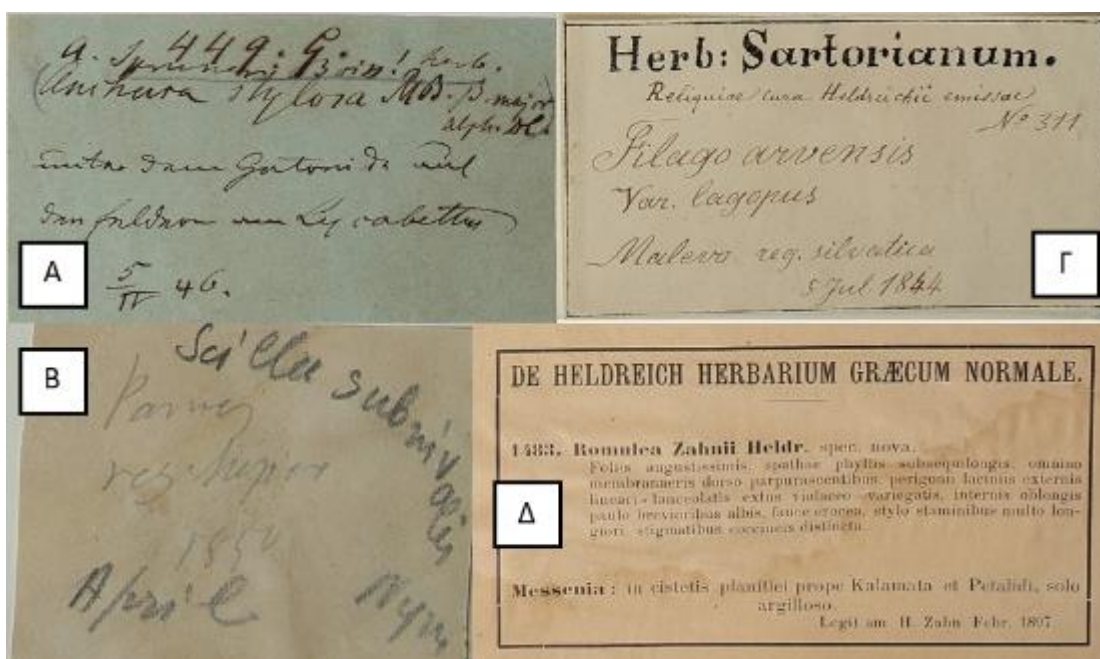 449.
a. Spruneri Boiss! herb.
(Anchusa stylosa MB. β major
alph. DC.)
unter dem Getreide und
den Feldern am Lycabettus
5/IV 46.
A
Herb: Sartorianum.
Reliquiae cura Heldreichii emissae
No 311
Filago arvensis
Var. lagopus
Malevo reg. silvatica
5 Jul. 1844
Γ
Scilla subnivalis
Parnes
reg. super
1850
April
Nym
B
DE HELDREICH HERBARIUM GRÆCUM NORMALE.
1483. Romulea Zahnii Heldr. spec. nova.
Foliis angustissimis, spathae phyllis subaequilongis, omnino
membranaceis dorso purpurascentibus, perigonii laciniis externis
lineari-lanceolatis extus violaceo variegatis, internis oblongis
paulo brevioribus albis, fauce crocea, stylo staminibus multo lon-
giori, stigmatibus coccineis distincta.
Messenia: in cistetis planitiei prope Kalamata et Petalidi, solo
argilloso.
Legit am. H. Zahn Febr. 1897
Δ